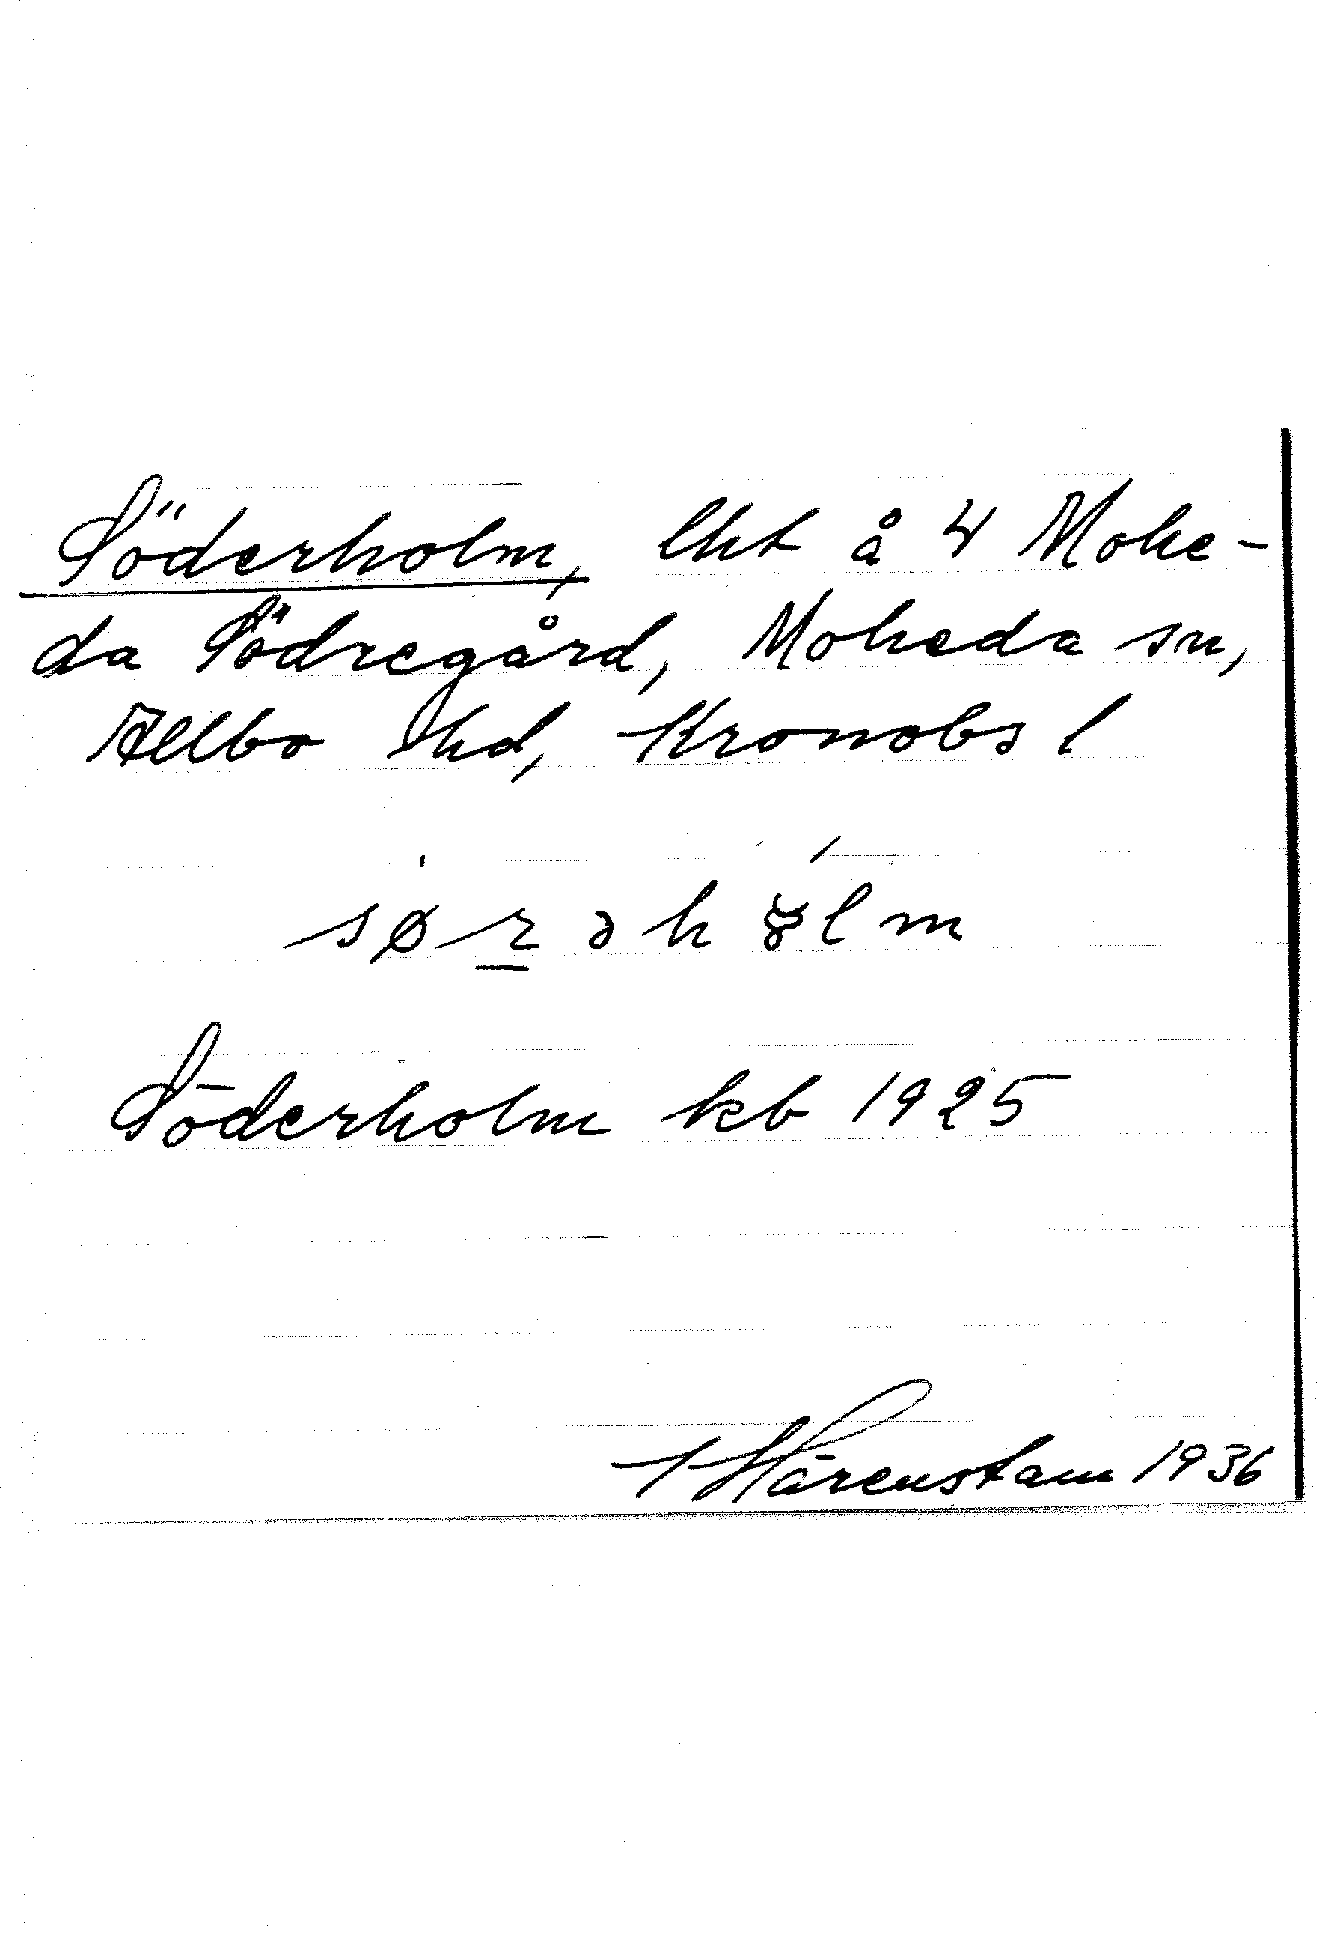 Söderholm, lht å 4 Mohe-
da Södregård, Moheda sn,
Allbo hd, Kronobs l
Söderholm kb 1925
Härenstam 1936